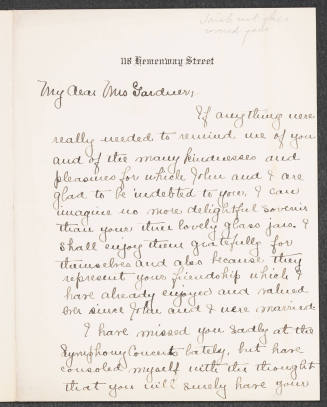 118 Hemenway Street
My dear Mrs Gardner,
If anything were
really needed to remind me of you
and of the many kindnesses and
pleasures for which John and I are
glad to be indebted to you, I can
imagine no more delightful souvenir
than your three lovely glass jars. I
shall enjoy them gratefully for
themselves and also because they
represent your friendship which I
have already enjoyed and valued
ever since John and I were married.
I have missed you sadly at the
Symphony Concerts lately, but have
consoled myself with the thought
that you will surely have your